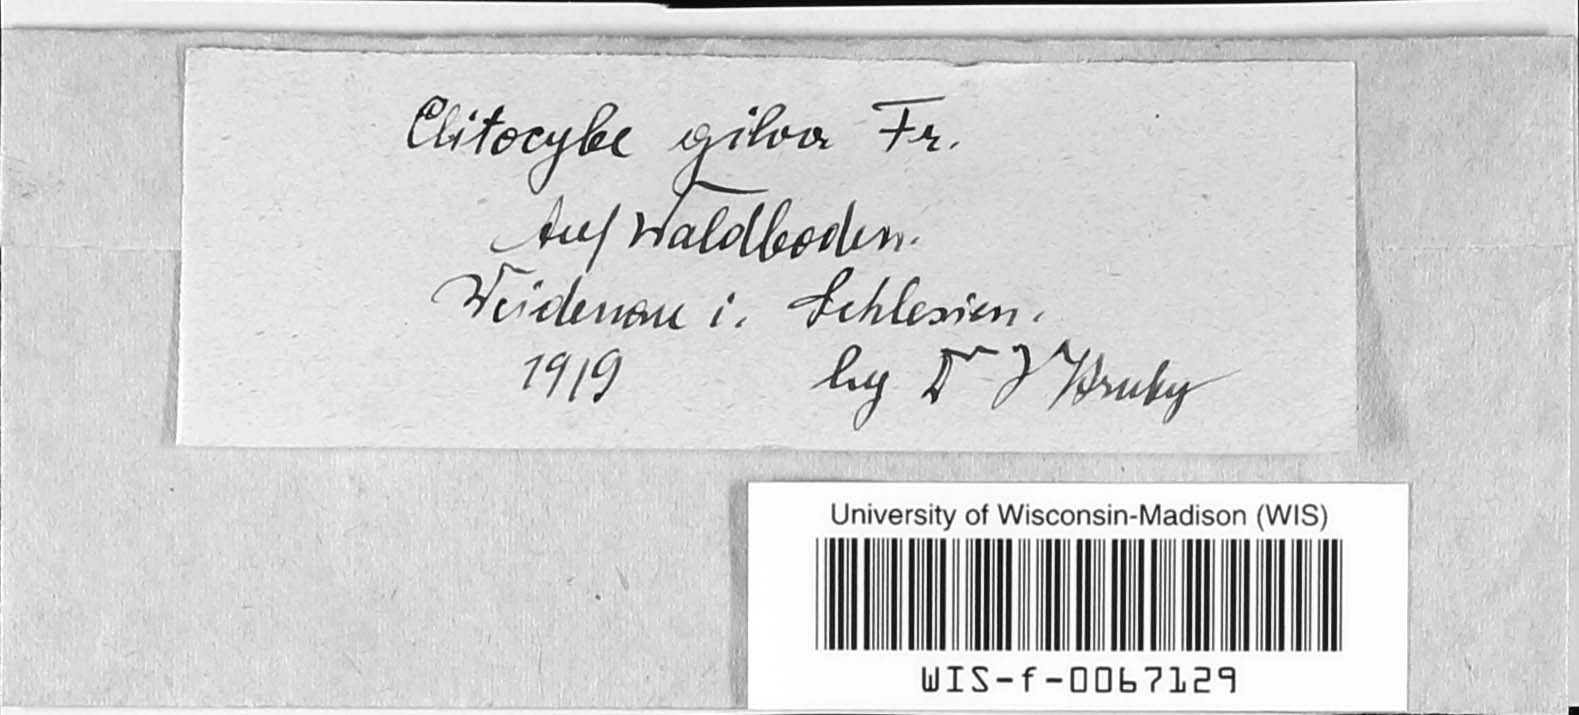 Clitocybe gilva Fr.
Auf Waldboden.
Weidenau i. Schlesien.
1919 leg Dr J Hruby
University of Wisconsin-Madison (WIS)
WIS-f-0067129